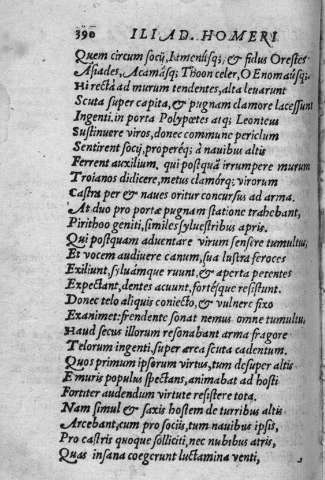 390 ILIAD. HOMERI
Quem circum socij, Iämenusq;, & fidus Orestes
Asiades, Acamasq; Thoon celer, O Enomausq;
Hi rectà ad murum tendentes, alta leuarunt
Scuta super capita, & pugnam clamore lacessunt
Ingenti. in porta Polypœtes atq; Leonteus
Sustinuere viros, donec commune periclum
Sentirent socij, properéq; à nauibus altis
Ferrent auxilium. qui postquã irrumpere murum
Troianos didicere, metus clamórq; virorum
Castra per & naues oritur concursus ad arma.
At duo pro porta pugnam statione trahebant,
Pirithoo geniti, similes syluestribus apris.
Qui postquam aduentare virum sensere tumultu,
Et vocem audiuere canum, sua lustra feroces
Exiliunt, syluámque ruunt, & aperta petentes
Expectant, dentes acuunt, fortéque resistunt.
Donec telo aliquis coniecto, & vulnere fixo
Exanimet: frendente sonat nemus omne tumultu,
Haud secus illorum resonabant arma fragore
Telorum ingenti, super area scuta cadentum.
Quos primum ipsorum virtus, tum desuper altis
E muris populus spectans, animabat ad hosti
Fortiter audendum virtute resistere tota.
Nam simul & saxis hostem de turribus altis
Arcebant, cum pro socijs, tum nauibus ipsis,
Pro castris quoque solliciti, nec nubibus atris,
Quas insana coegerunt luctamina venti,